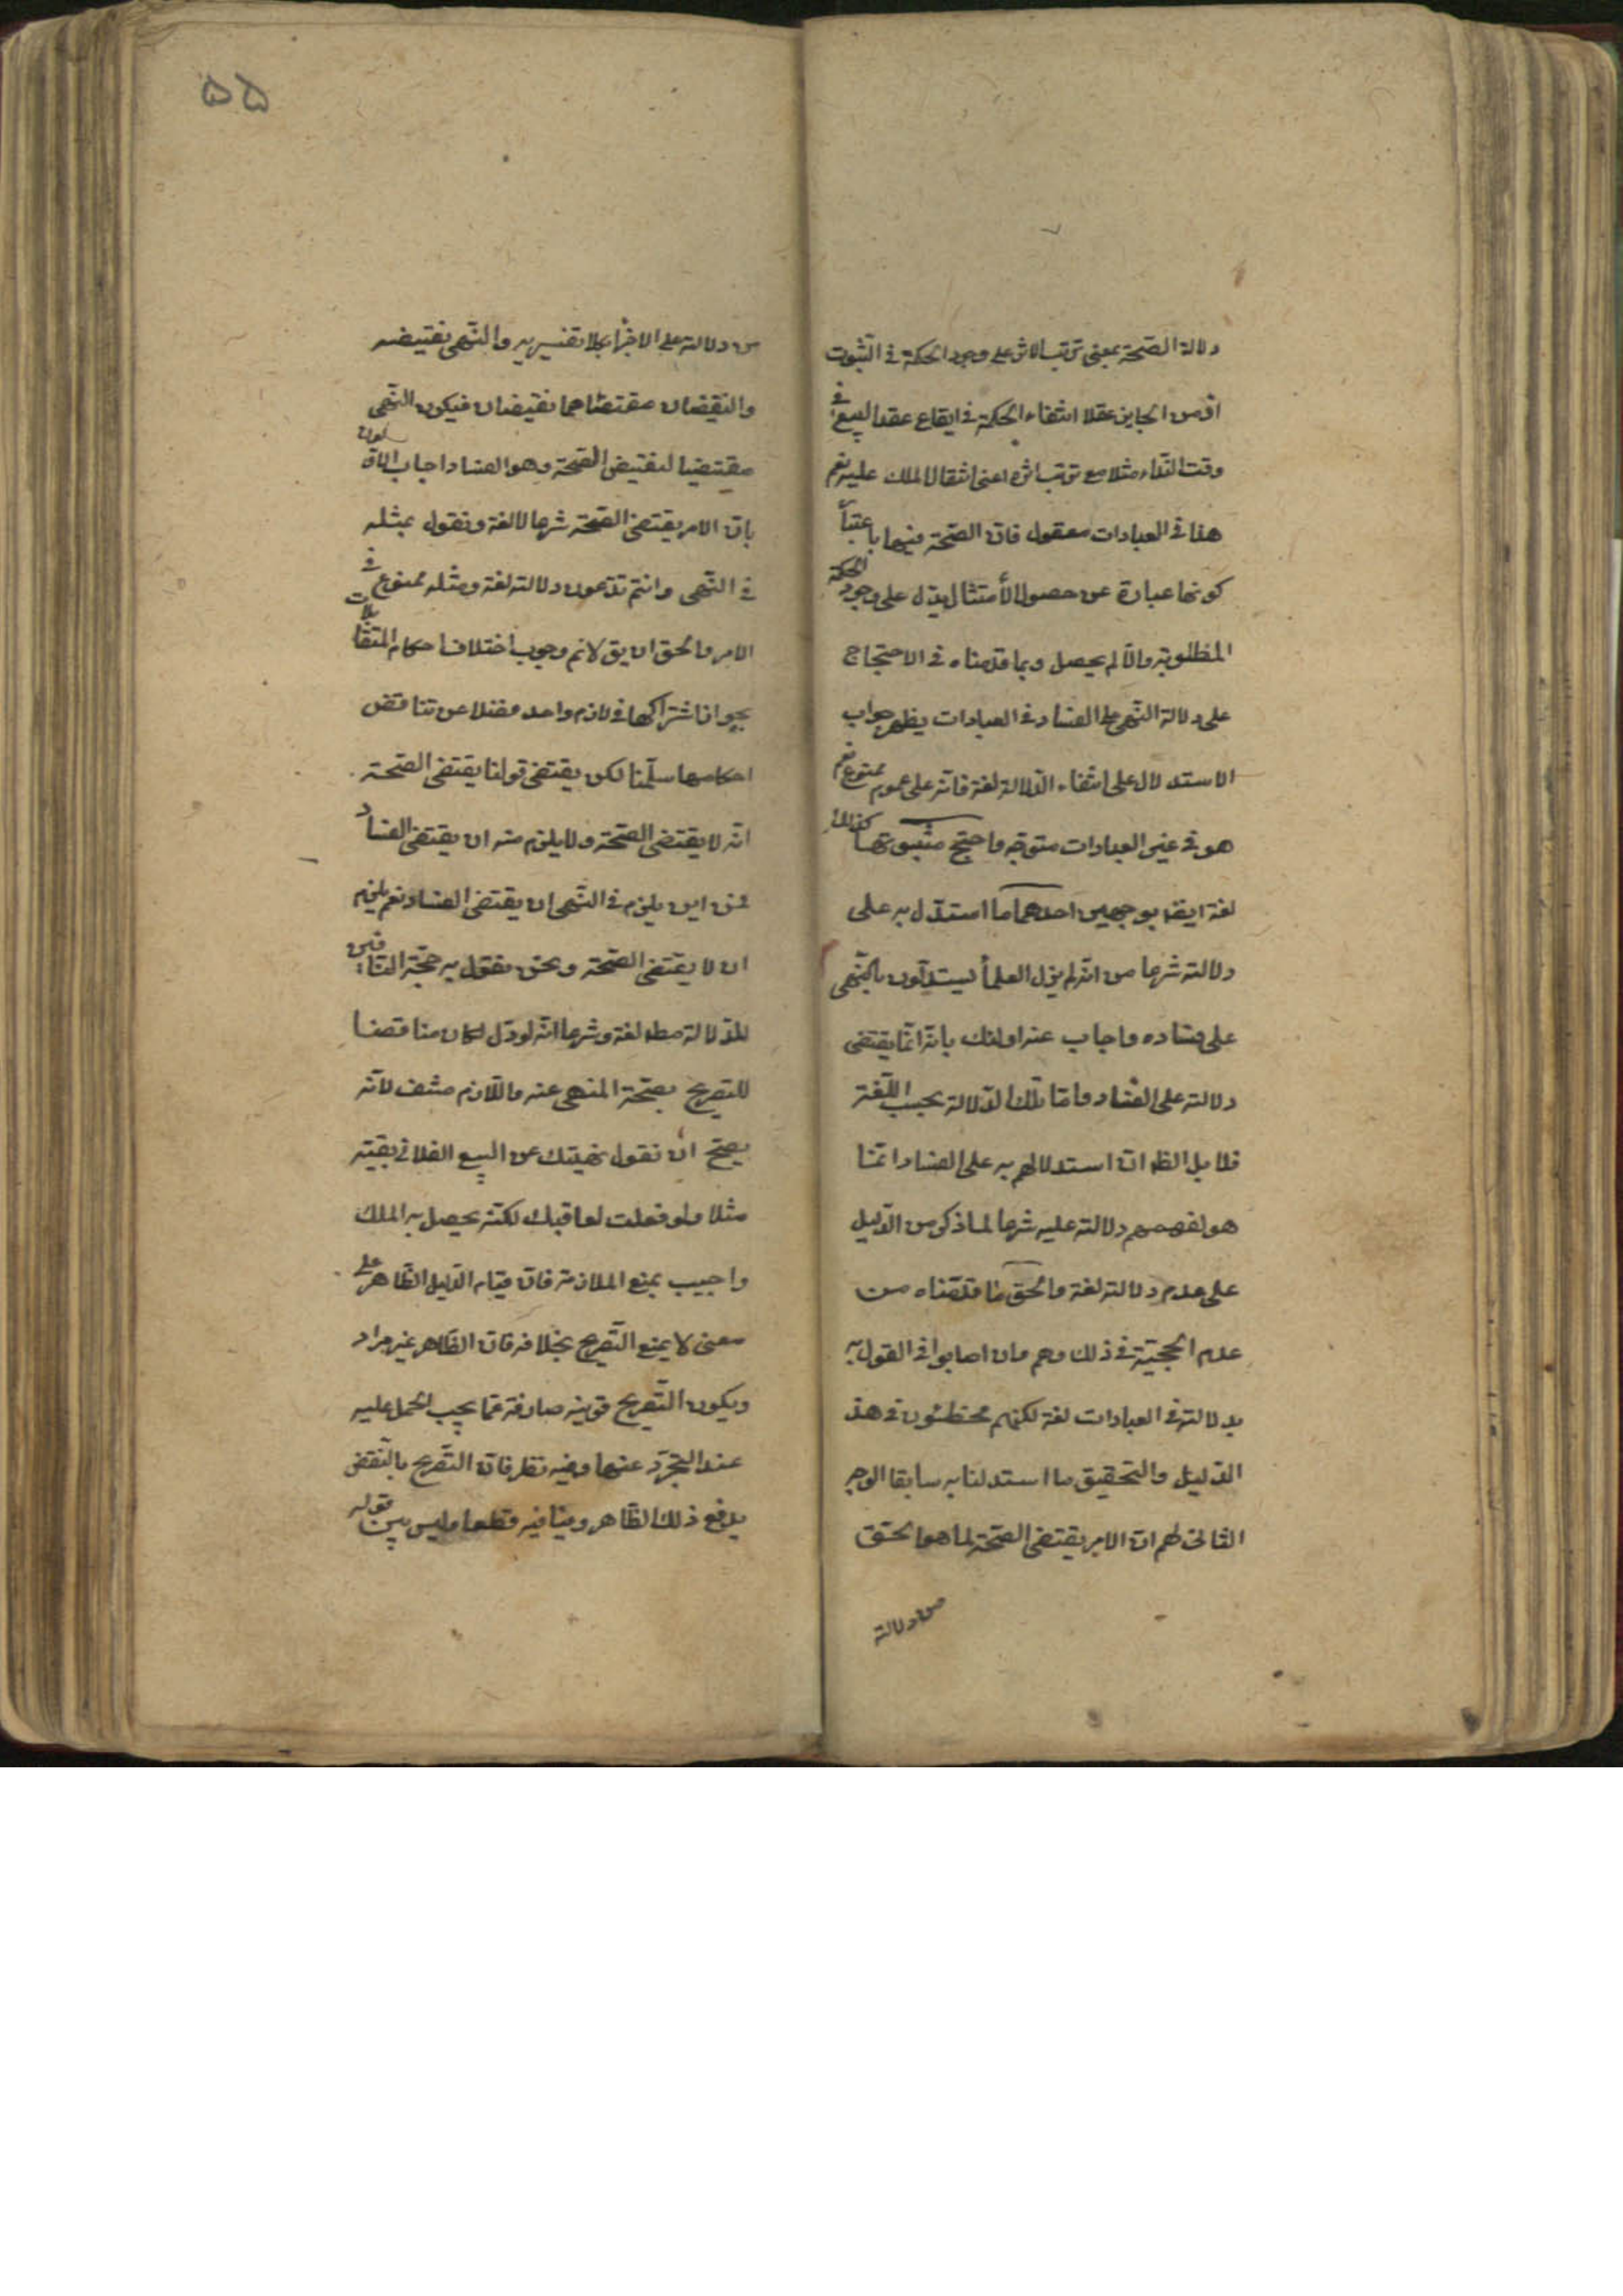 دلالة الصّحة بمعنى ترتّب الاثر على وجود الحكمة فى الثّبوت
اذ من الجايز عقلا انتفاء الحكمة فى ايقاع عقد البيع فى
وقت النّداء مثلا مع ترتب اثره اعنى انتقال الملك عليه نعم
هذا فى العبادات معقول فانّ الصّحة فيها باعتبا
كونها عبارة عن حصول الأمتثال يدّل على وجود الحكمة
المطلوبة والّا لم يحصل وبما قدمناه فى الاحتجاج
على دلالة النّهى على الفساد فى العبادات يظهر جواب
الاستدلال على انتفاء الدّلالة لغة فانّه على عمومه ممنوع نعم
هو فى غير العبادات متوجّه واحتج مثبتوتها كذلك
لغة ايضا بوجهين احدهما ما استدّل به على
دلالته شرعا من انّه لم يزل العلمأ يستدلّون بالنّهى
على فساده واجاب عنه اولئك بانّه انّما يقتضى
دلالته على الفساد وامّا تلك الدّلالة بحسب اللّغة
فلا بل الظ انّ استدلالهم به على الفساد انّما
هو لفهمهم دلالته عليه شرعا لما ذكر من الدّليل
على عدم دلالته لغة والحقّ ما قدّمناه من
عدم الحجيّة فى ذلك وهم وان اصابوا فى القول به
بدلالته فى العبادات لغة لكنهم مخطئون فى هذ
الدّليل والتحقيق ما استدلنا به سابقا الوجه
الثانى لهم انّ الامر يقتضى الصّحة لما هو الحقّ
من دلالته
من دلالته على الاجزأ بكلا تفسيريه والنّهى نقيضه
والنّقيضان مقتضاهما نقيضان فيكون النّهى
مقتضيا لنقيض الصّحة وهو الفساد واجاب الاوّلون
بانّ الامر يقتضى الصّحة شرعا لا لغة ونقول بمثله
فى النّهى وانتم تدّعون دلالته لغة ومثله ممنوع فى
الامر والحق ان يق لانم وجوب اختلاف احكام المتقابلات
بجواز اشتراكها فى لازم واحد فضلا عن تناقض
احكامها سلّمنا لكن يقتضى قولنا يقتضى الصّحة
انّه لا يقتضى الصّحة ولا يلزم منه ان يقتضى الفساد
فمن اين يلزم فى النّهى ان يقتضى الفساد نعم يلزم
ان لا يقتضى الصّحة ونحن نقول به حجّة النّافين
للدّلالة مط لغة وشرعا انّه لو دّل لكان مناقضا
للتصريح بصحّة المنهى عنه واللّازم منتف لانّه
يصحّ ان نقول نهيتك عن البيع الفلانى بعينه
مثلا ولو فعلت لعاقبتك لكنّه يحصل به الملك
واجيب بمنع الملازمة فانّ قيام الدّليل الظّاهر على
معنى لا يمنع التّصريح بخلافه فانّ الظّاهر غير مراد
ويكون التّصريح قرينة صارفة عمّا يجب الحمل عليه
عند التّجرّد عنها وفيه نظر فانّ التّصريح بالنّقيض
يدفع ذلك الظّاهر وينافيه قطعا وليس بين قوله
۵۵